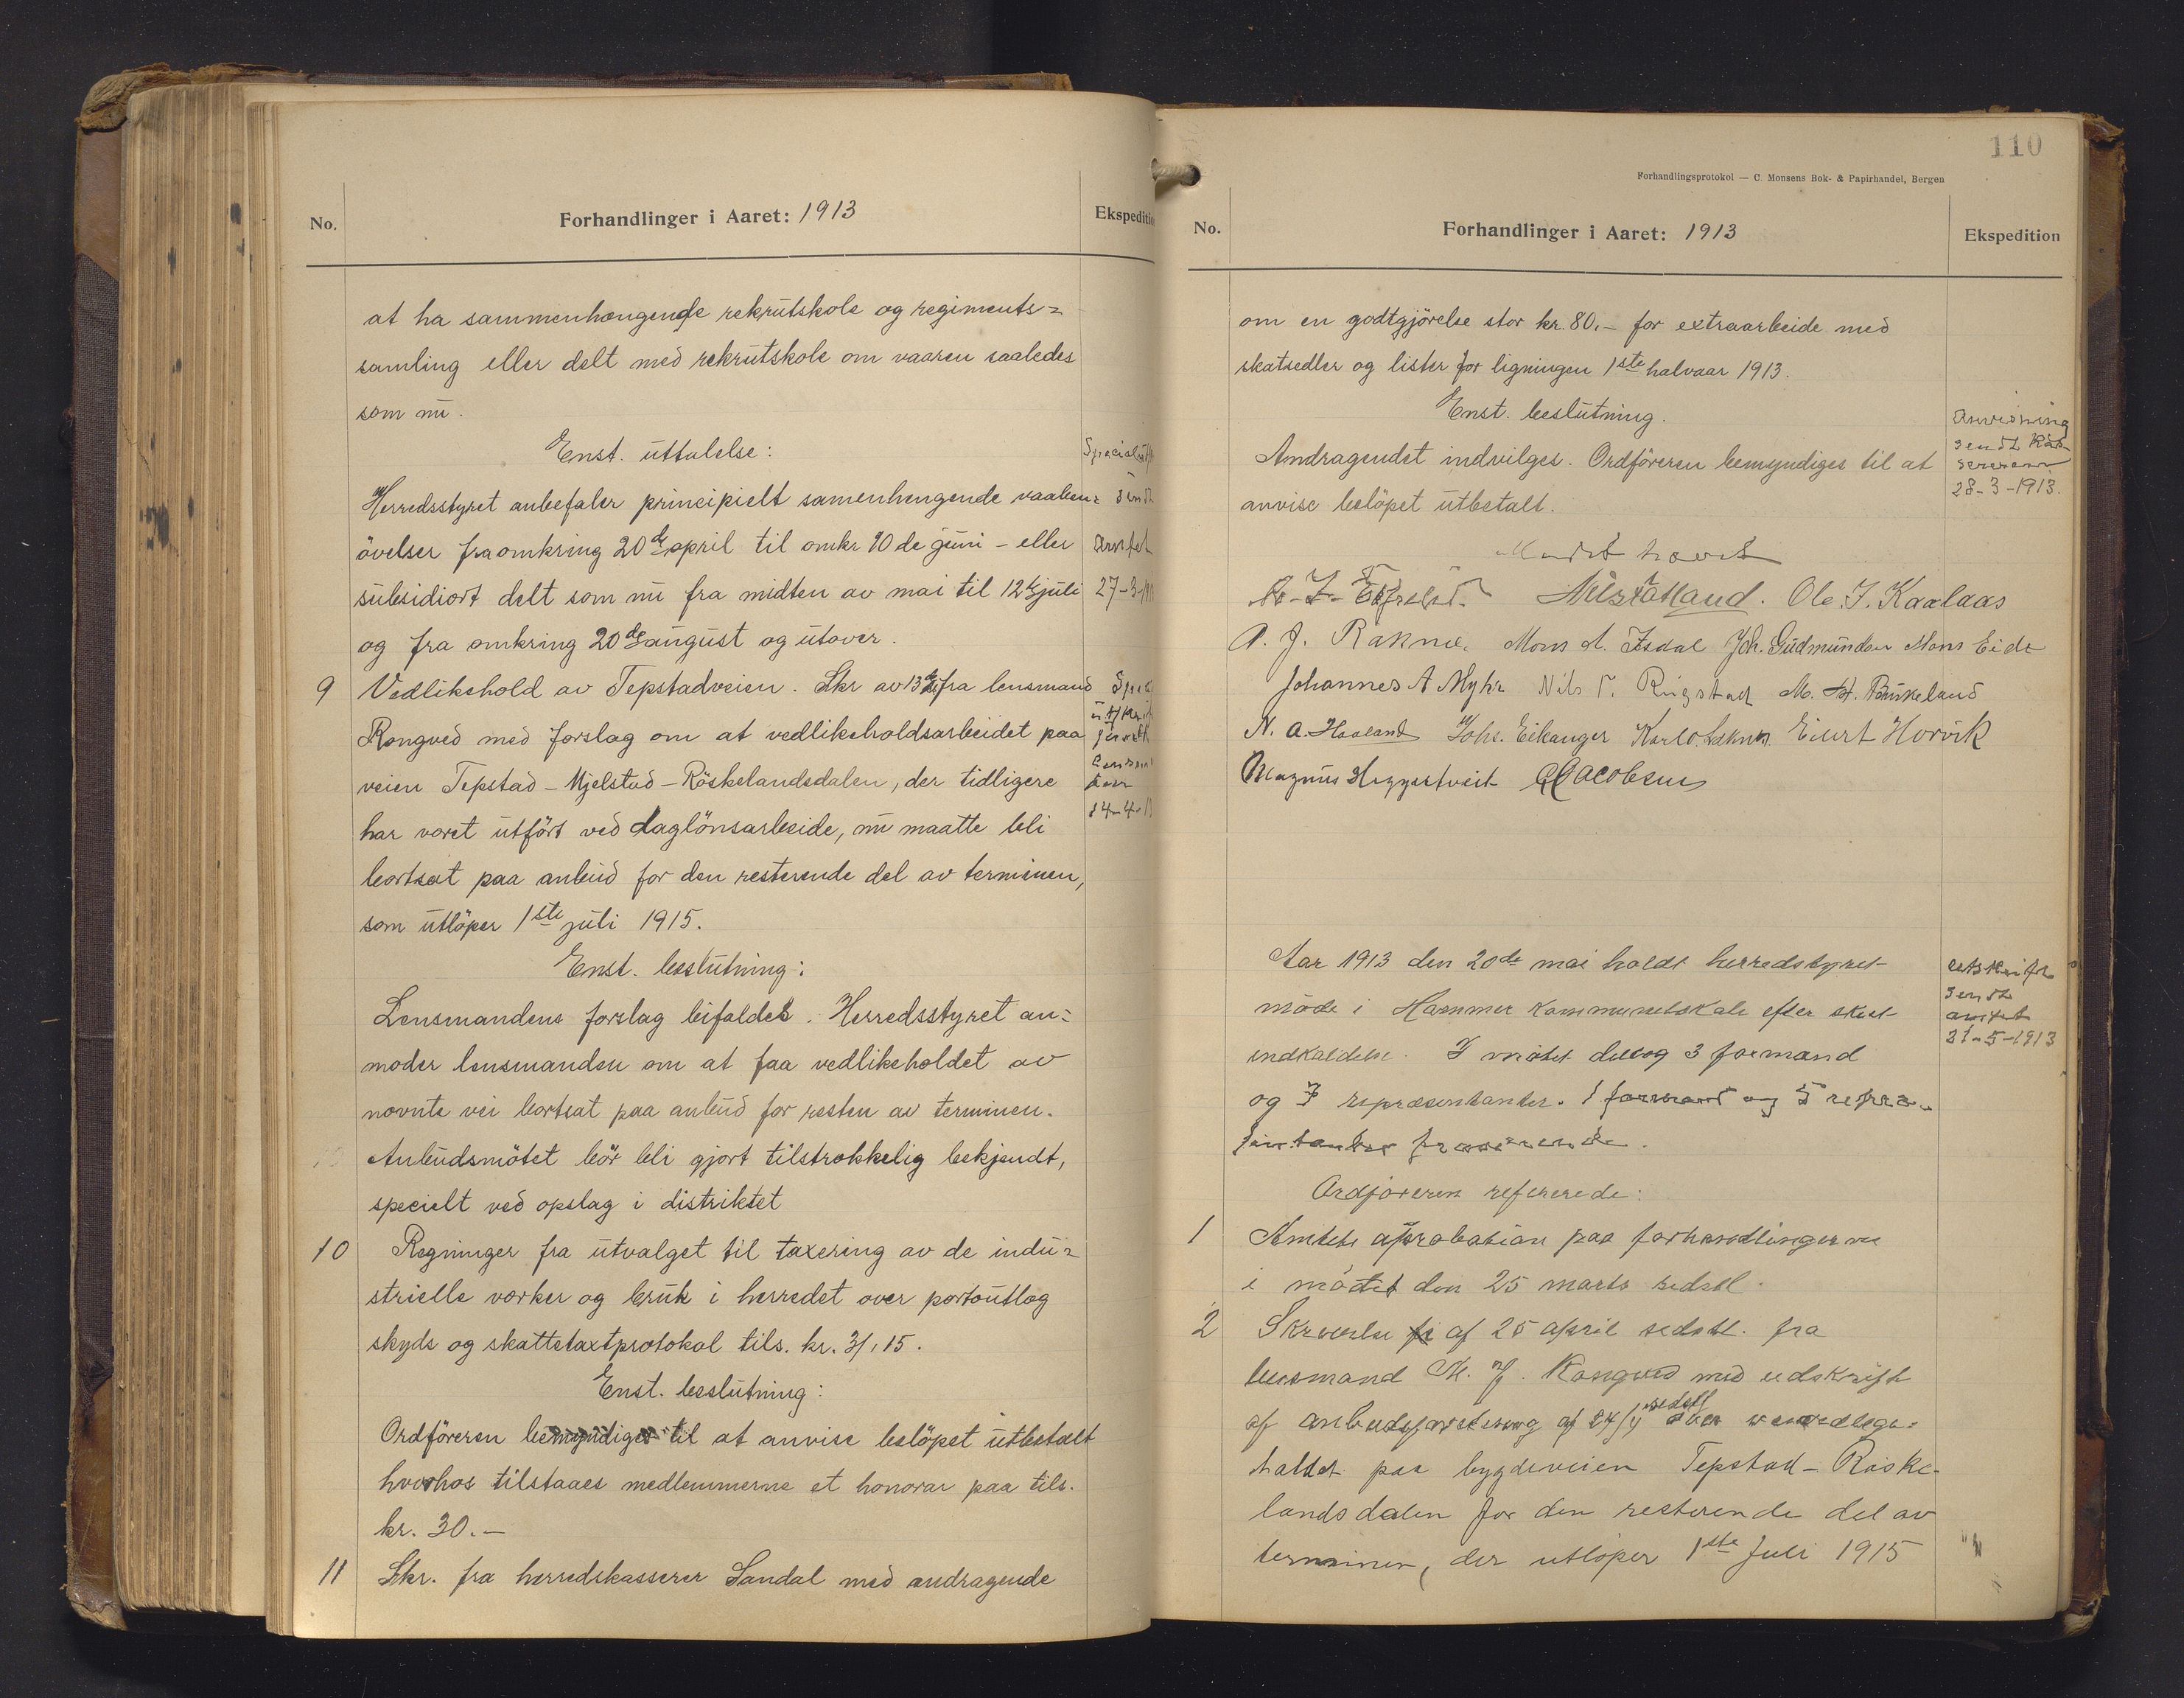 No.
Forhandlinger i Aaret: 1913
Ekspeditio
at ha sammenhængende rekrutskole og regiments=
samling eller delt med rekrutskole om vaaren saaledes
som nu.
Enst. uttalelse:
Herredsstyret anbefaler principielt samenhengende vaaben=
övelser fra omkring 20de april til omkr 10de juni – eller
subsidiært delt som nu fra midten av mai til 12te juli
og fra omkring 20de august og utover.
sendt
27-3-
9 Vedlikehold av Tepstadveien. Skr av 13de fra lensmand
Rongved med forslag om at vedlikeholdsarbeidet paa
veien Tepstad – Mjelstad – Röskelandsdalen, der tidligere
har været utfört ved daglönsarbeide, nu maatte bli
bortsat paa anbud for den resterende del av terminen,
som utlöper 1ste juli 1915.
14-4-
Enst. beslutning:
Lensmandens forslag bifaldes. Herredsstyret an=
moder lensmanden om at faa vedlikeholdet av
nævnte vei bortsat paa anbud for resten av terminen.
Anbudsmötet bör bli gjort tilstrækkelig bekjendt,
specielt ved opslag i distriktet
10 Regninger fra utvalget til taxering av de indu=
strielle værker og bruk i herredet over portoutlæg
skyds og skattetaxtprotokol tils. kr. 31,15.
Enst. beslutning:
Ordföreren bemyndiges til at anvise belöpet utbetalt
hvorhos tilstaaes medlemmerne et honorar paa tils.
kr. 30.–
11 Skr. fra herredskasserer Sandal med andragende
110
Forhandlingsprotokol — C. Monsens Bok- & Papirhandel, Bergen
No.
Forhandlinger i Aaret: 1913
Ekspedition
om en godtgjörelse stor kr. 80.– for extraarbeide med
skatsedler og lister for ligningen 1ste halvaar 1913.
Enst. beslutning.
Andragendet indvilges. Ordföreren bemyndiges til at
anvise belöpet utbetalt.
Anvisning
sendt Kas-
sereren
28-3-1913.
Mödet hævet
Nils Tatland. Ole J. Kaalaas
A. J. Rakne. Mons A. Isdal Joh. Gudmundsen Mons Eide
Johannes A Myhr Nils T. Rügstad M. H. Birkeland
N. A. Haaland Johs. Eikanger Karl O. Eivert Horvik
Magnus Heggertveit Jacobsen
Aar 1913 den 20de mai holdt herredstyret
möde i Hammer kommunelokale efter skeet
indkaldelse. I mötet deltog 3 formænd
og 7 repræsentanter. 1 formand og 5 repræ-
sentanter fraværende.
Utskrift
sendt
amtet
21-5-1913
Ordföreren refererede:
1 Amtets approbation paa forhandlingerne
i mötet den 25 marts sidstl.
2 Skrivelse af 25 april sidstl. fra
lensmand M. J. Rongved med udskrift
af anbudsforretning af 24/4 sidstl over vedlige-
holdet paa bygdeveien Tepstad – Röske-
landsdalen for den resterende del av
terminen, der utlöper 1ste Juli 1915